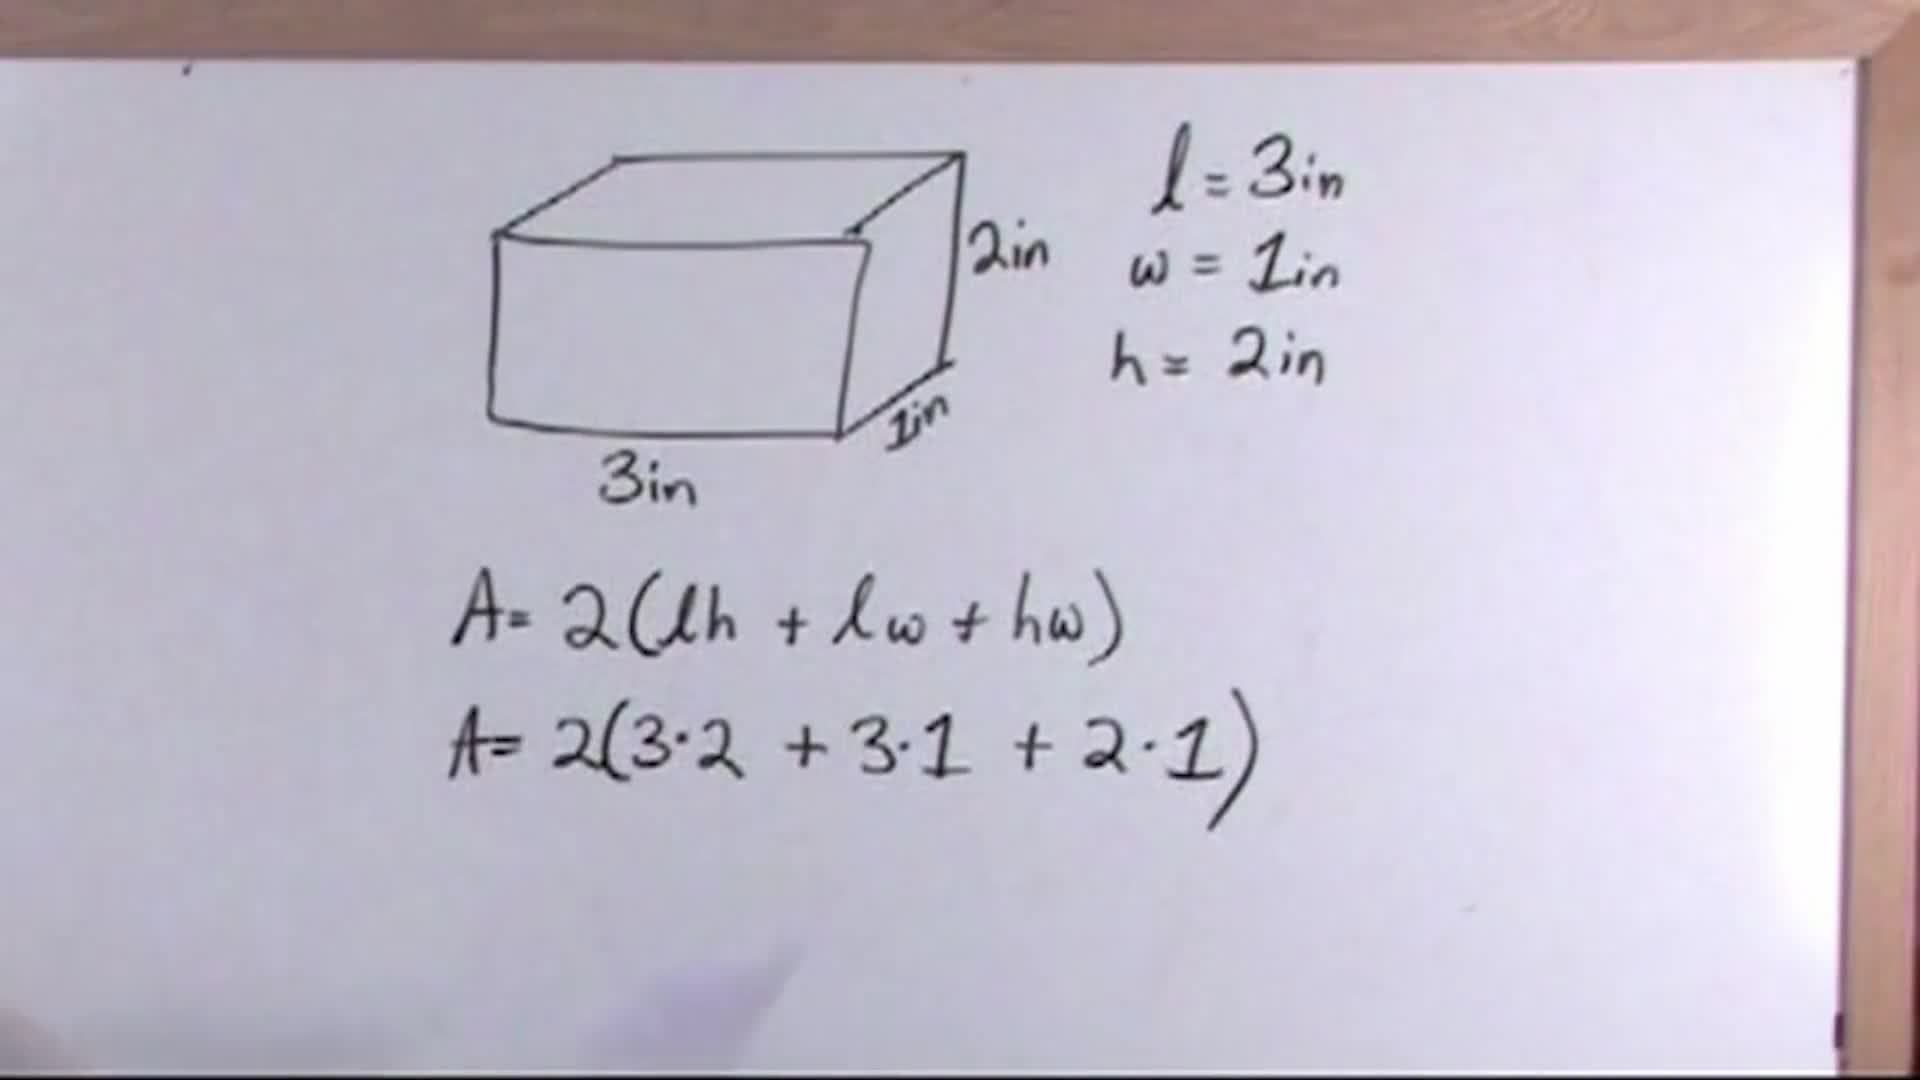 2in
1in
3in
l = 3in
w = 1in
h = 2in
A= 2(lh + lw + hw)
A= 2(3·2 + 3·1 + 2·1)